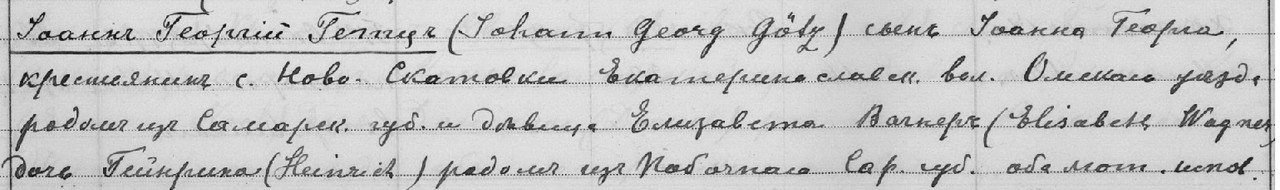 Іоаннъ Георгій Гетцъ (Johann Georg Götz) сынъ Іоанна Георга,
крестьянинъ с. Ново-Скатовки Екатеринославск. вол. Омскаго уѣзда
родомъ изъ Самарск. губ. и дѣвица Елизавета Вагнеръ (Elisabeth Wagner)
дочь Гейнриха (Heinrich) родомъ изъ Побочнаго Сар. губ. оба лют. испов.